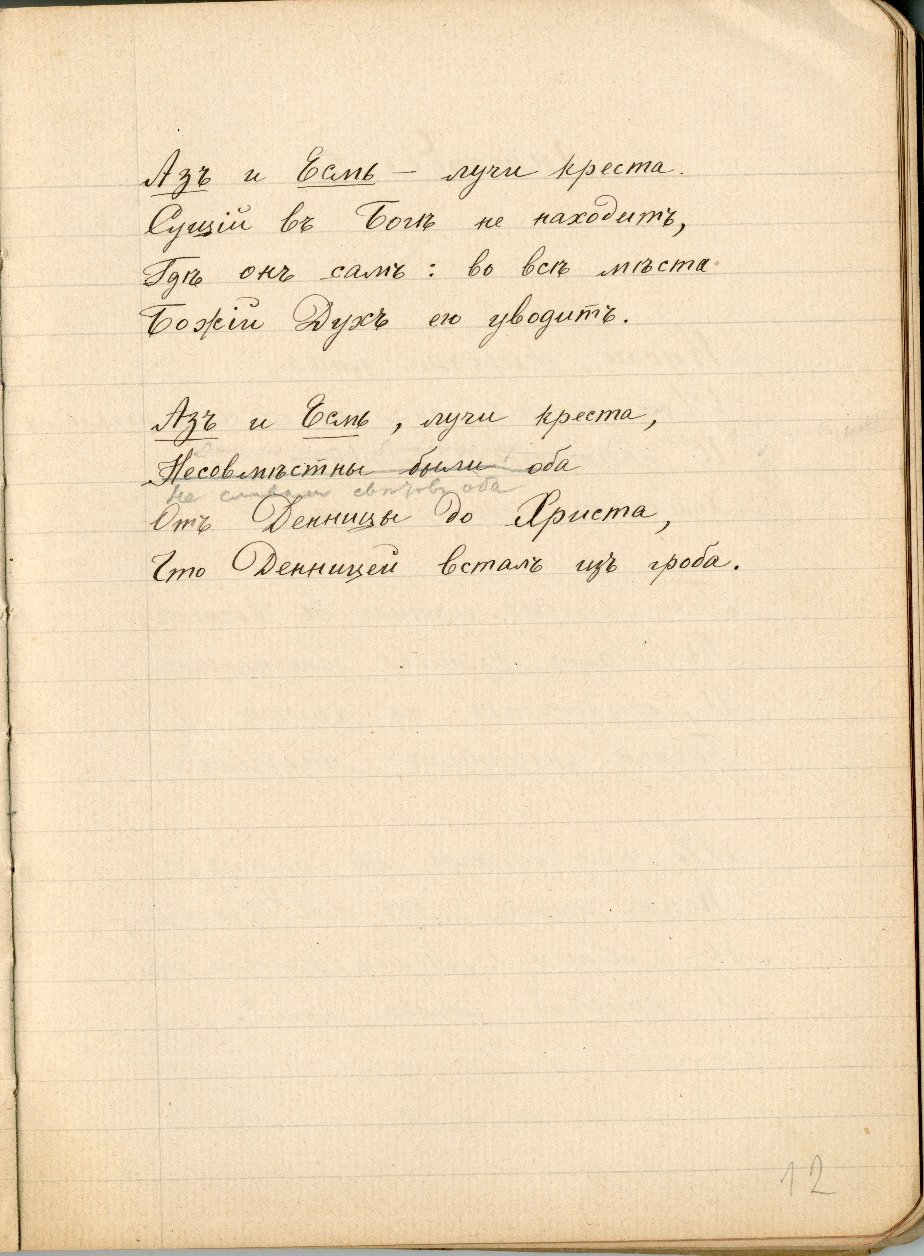 Азъ и Есмь – лучи креста.
Сущій въ Богѣ не находитъ,
Гдѣ онъ самъ: во всѣ мѣста
Божій Духъ его уводитъ.
Азъ и Есмь, лучи креста,
Несовмѣстны были оба
не сливали свѣтовъ оба
Отъ Денницы до Христа,
Что Денницей всталъ изъ гроба.
12